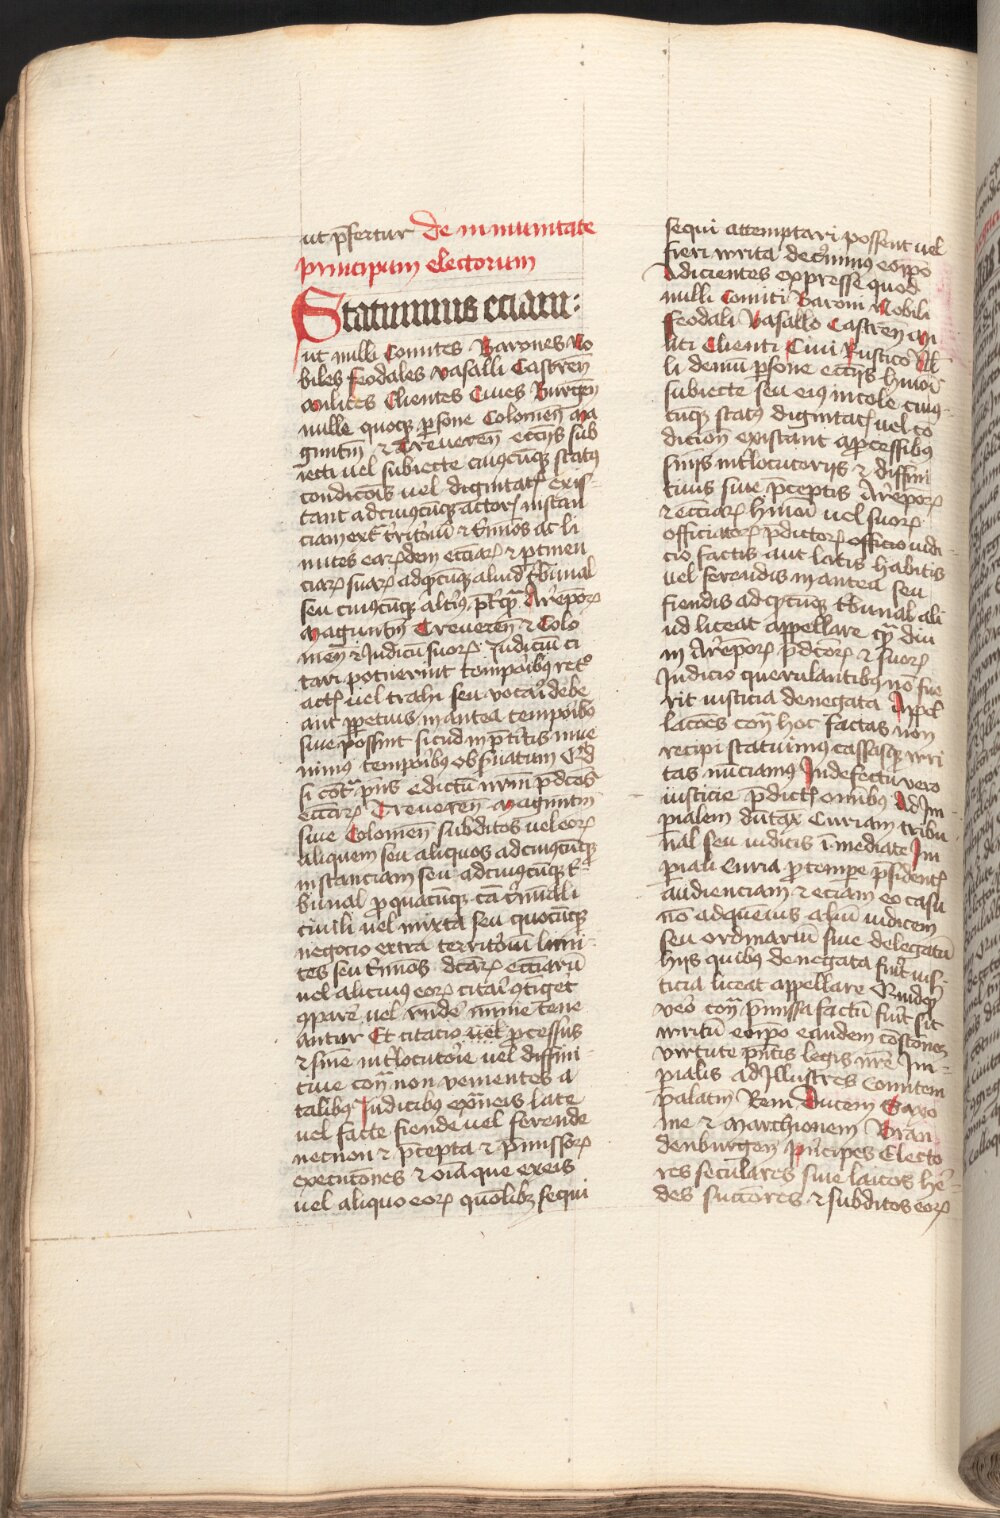 ut p̄fertur De inmunitate
principum electorum
Statuimus eciam:
ut nulli Comites Barones No
biles feodales vasalli Castren̄
milites Clientes Ciues Burgen̄
nulle quoqꝫ ꝑsone Colonien̄ Ma
guntin̄ ⁊ Treueren̄ ecc̄iis sub
iecti vel subiecte cuiuscūqꝫ status
condicōis vel dignitatꝭ exis-
tant ad cuiuscūqꝫ actorꝭ instan
ciam ext͛ t͛ritoriū ⁊ t͛minos ac li
mites earꝝdem ecciarꝝ ⁊ ꝑtinen
ciarꝝ suarꝝ ad qd̄cūqꝫ aliud t͛bunal
seu cuiuscūqꝫ alt͛ius p̄t͛qꝫ Ar̄ep̄orꝝ
Maguntin̄ Treueren̄ ⁊ Colo
nien̄ ⁊ Iudicū suorꝝ iudiciū ci
tari potuerint temporibꝫ ret͛o
actꝭ vel trahi seu vocari debe
ant ꝑpetuis in antea temporibꝫ
siue possint sicud in p̄t͛itis inue
nimus temporibꝫ obs͛uatum Qd̄
si cont͛ p̄ns edictū nr̄m p̄dc̄os
ecciarꝝ Treueren̄ Maguntin̄
siue Colonien̄ subditos vel eorꝝ
aliquem seu aliquos ad cuiuscūqꝫ
instanciam seu ad cuiuscūqꝫ t͛-
bunal ꝓ quacūqꝫ cā c͛minali
ciuili vel mixta seu quocūqꝫ
negocio extra territoriū limi-
tes seu t͛minos dc̄arꝝ ecciarū
vel alicuius eorꝝ citari ꝯtiget
ꝯparere vel rn̄dere minime tene
antur Et citacio vel ꝓcessus
⁊ sn̄ie int͛locutorie vel diffini-
tiue con̄ non venientes a
talibꝫ Iudicibꝫ ext͛neis late
vel facte fiende vel ferende
necnon ⁊ p̄cepta ⁊ p̄missorꝝ
executōnes ⁊ oīa que ex eis
vel aliquo eorꝝ quōlibꝫ sequi
sequi attemptari possent vel
fieri irrita decernimus eo ip̄o
Adicientes expresse quod
nulli Comiti Baroni Nobili
feodali Vasallo Castren̄ mi
liti Clienti Ciui Rustico Nl̄
li demū ꝑsone ecciis hmōi
subiecte seu eius incole cuius-
cūqꝫ status dignitatꝭ vel cō
dicōn existant a ꝓcessibꝫ
sn̄iis int͛locutoriis ⁊ diffini
tiuis siue p̄ceptis Ar̄ep̄orꝝ
⁊ ecciarꝝ hmōi vel suorꝝ
officiatorꝝ p̄dictorꝝ officio iudi-
cio factis aut latis habitis
vel ferendis in antea seu
fiendis ad qd̄cūqꝫ t͛bunal ali
ud liceat appellare qm̄ diu
in Ar̄ep̄orꝝ p̄dc̄orꝝ ⁊ suorꝝ
Iudicio querulantibꝫ nō fue
rit iusticia denegata Appel
lacōes con̄ hoc factas non
recipi statuimus cassasqꝫ irri
tas nūciamus In defectu vero
iusticie p̄dictꝭ om̄ibꝫ Ad Im
ꝑialem dūtax Curiam tribu
nal seu iudicis īmediate Im
ꝑiali Curia ꝓ tempe p̄sidentꝭ
audienciam ⁊ eciam eo casu
nō ad quemuis aliū iudicem
seu ordinariū siue delegatū
hiis quibꝫ denegata fuit ius-
ticia liceat appellare Quidqd̄
vero con̄ p̄missa factū fuit sit
irritū eo ip̄o eandem cōstōnem
virtute p̄ntis legis nr̄e Im-
ꝑialis ad Illustres Comitem
palatin̄ Reni Ducem Saxo
nie ⁊ Marchionem Bran
denburgen̄ Principes Electo
res seculares siue laicos he-
des succ̄ores ⁊ subditos eorꝝ